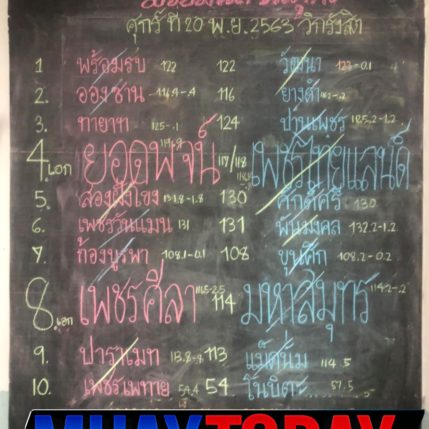 ศุกร์ ที่ 20 พ.ย. 2563 วิกรังสิต
1 พร้อมรบ 122 122 วัฒนา 123-0.1
2. อองซาน 114.4-.4 116 ยางดำ
3. ทายาท 125-.1 124 ป่านเพชร 125.2-1.2
4.เอก ยอดพจน์ 117/118 เพชรไทยแลนด์
5. สองฝั่งโขง 131.8-1.8 130 ศักดิ์ศรี 130
6. เพชรวันแมน 131 131 พันมงคล 132.2-1.2
7. ก้องบูรพา 108.1-0.1 108 ขุนศึก 108.2-0.2
8.เอก เพชรศิลา 114 มหาสมุทร 114.2-.2
9. ปาราเมท 113 แม็ดน่ม 114.5
10. เพชรเพทาย 54.4 54 โนบิตะ 57.5
MUAYTODAY